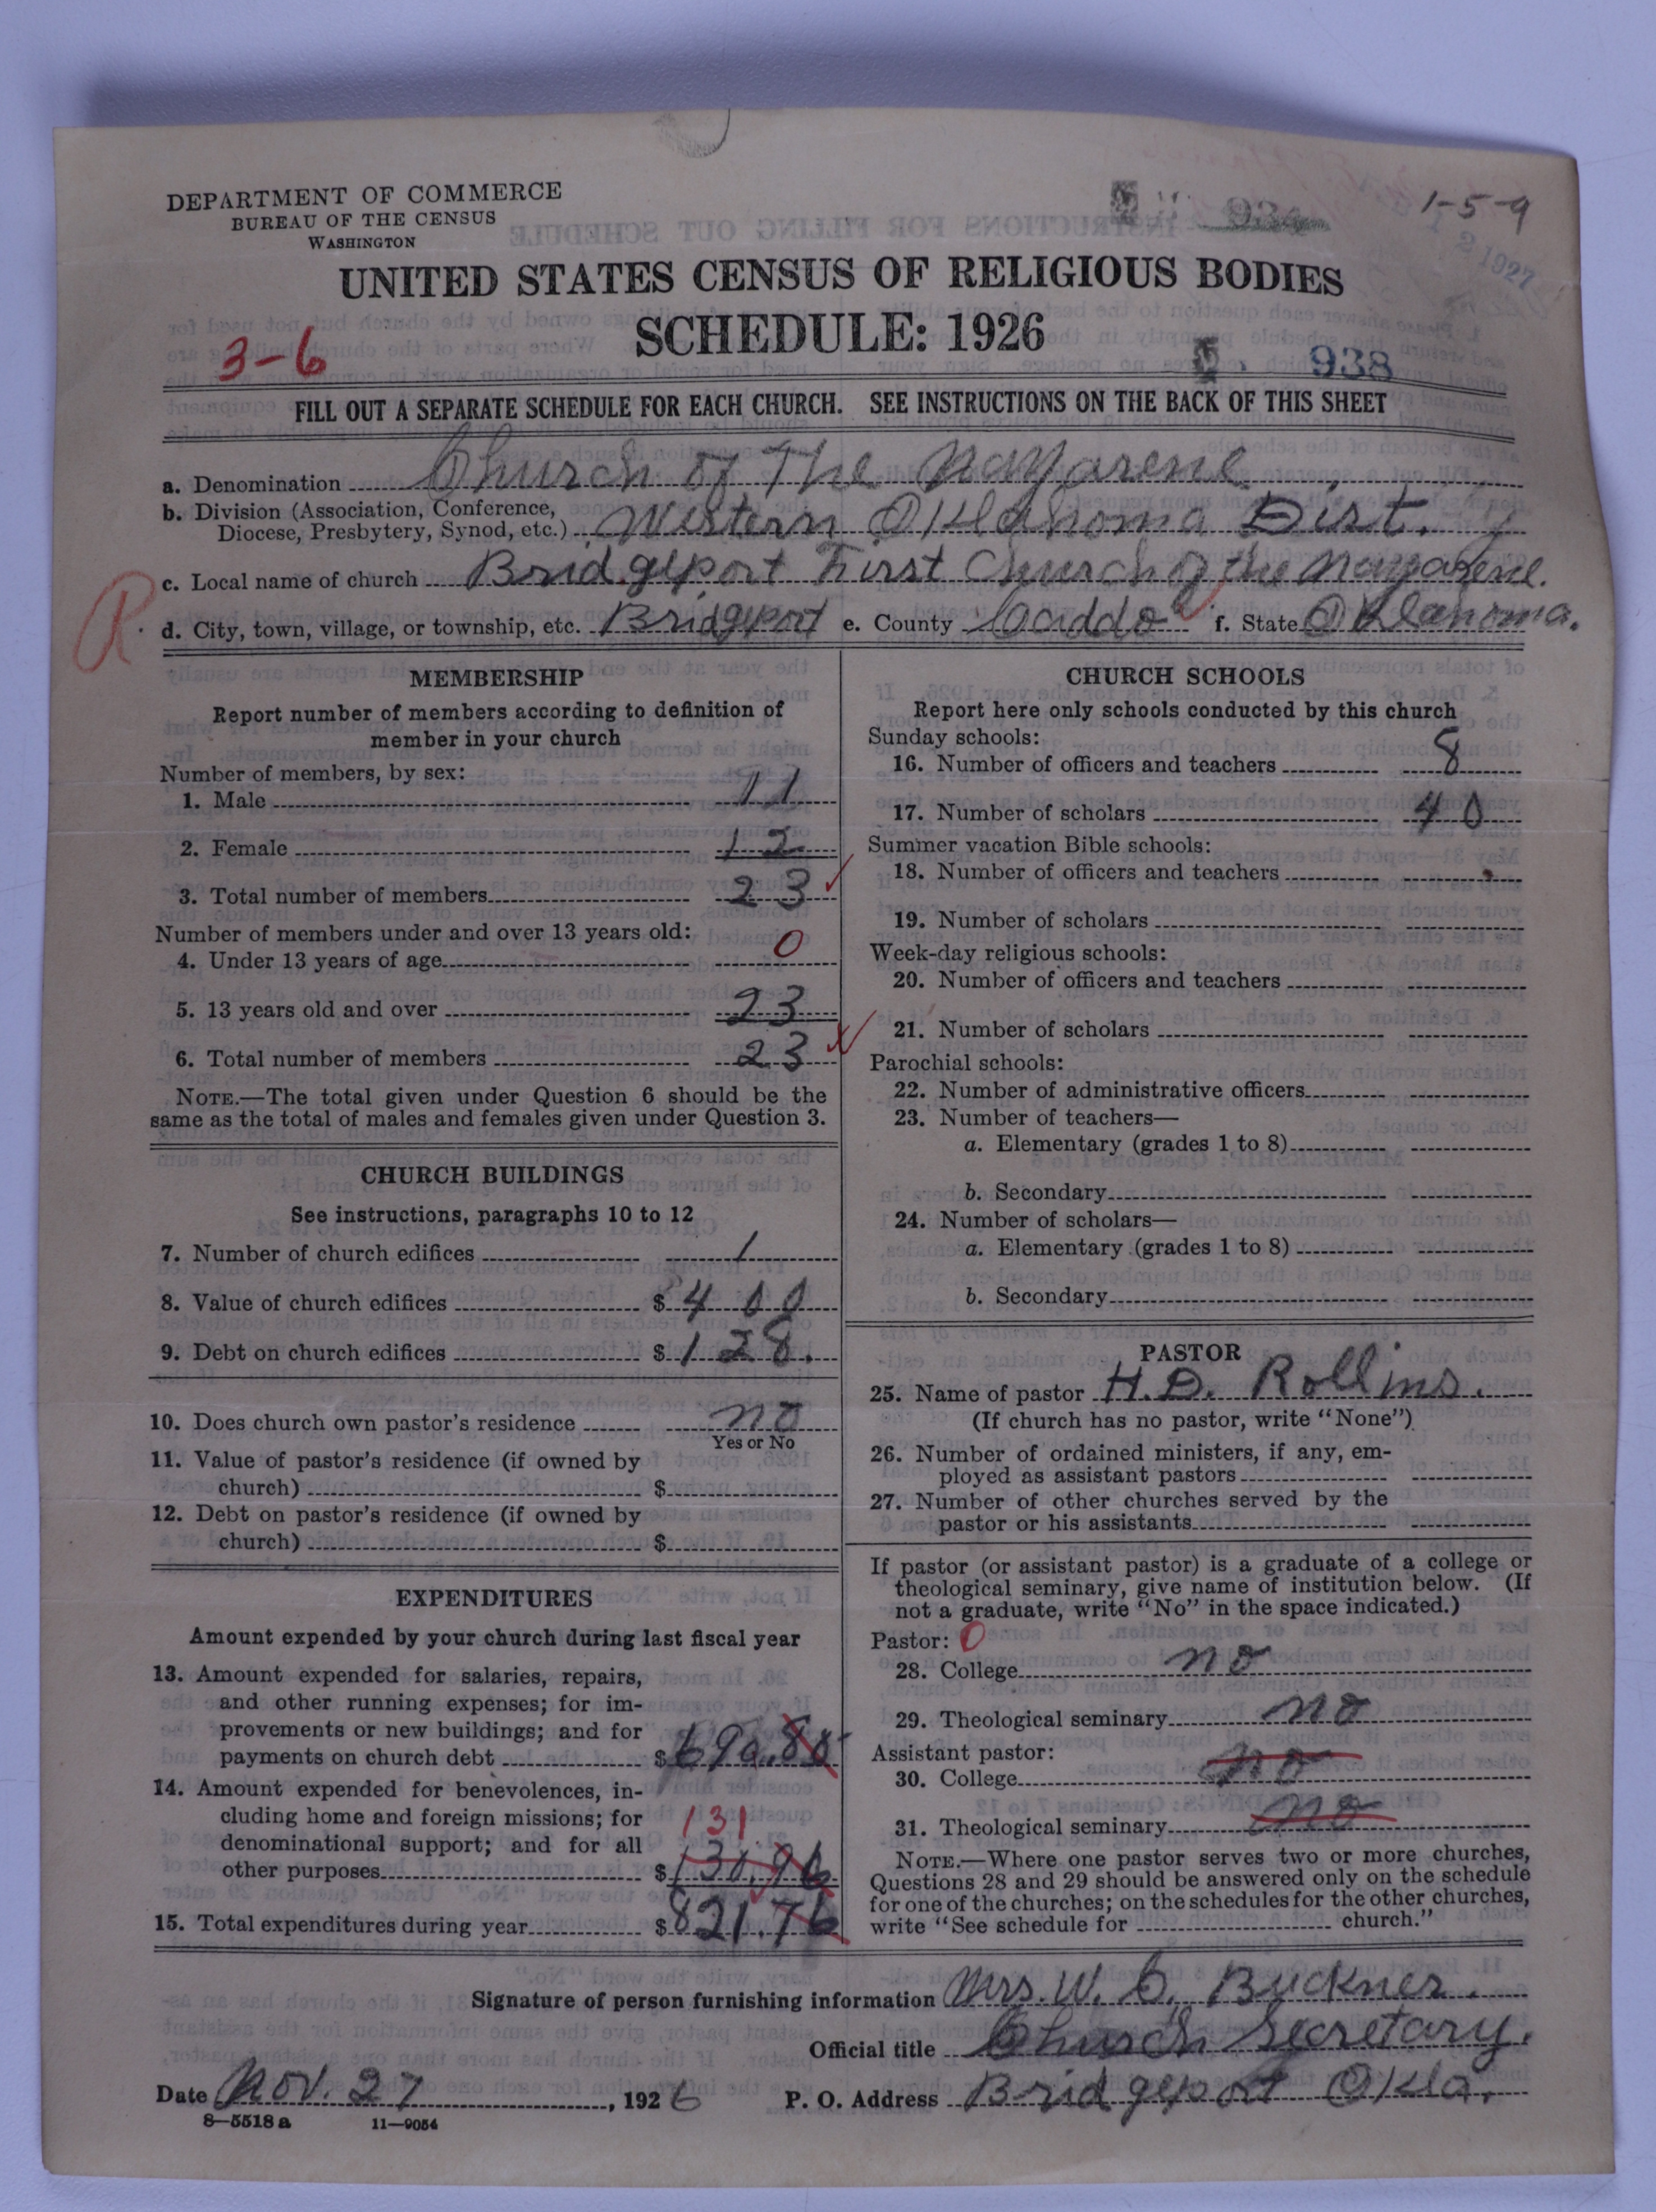 DEPARTMENT OF COMMERCE
BUREAU OF THE CENSUS
WASHINGTON
1-5-9
1927
UNITED STATES CENSUS OF RELIGIOUS BODIES
SCHEDULE: 1926
3-6
938
FILL OUT A SEPARATE SCHEDULE FOR EACH CHURCH. SEE INSTRUCTIONS ON THE BACK OF THIS SHEET
a. Denomination Church of The Nazarene
b. Division (Association, Conference,
Diocese, Presbytery, Synod, etc.) Western Oklahoma Dist.
c. Local name of church Bridgeport First Church of the Nazarene.
R.
d. City, town, village, or township, etc. Bridgeport e. County Caddo f. State Oklahoma.
MEMBERSHIP
Report number of members according to definition of
member in your church
Number of members, by sex:
1. Male 11
2. Female 12
3. Total number of members 23
Number of members under and over 13 years old:
4. Under 13 years of age 0
5. 13 years old and over 23
6. Total number of members 23
NOTE.—The total given under Question 6 should be the
same as the total of males and females given under Question 3.
CHURCH BUILDINGS
See instructions, paragraphs 10 to 12
7. Number of church edifices 1
8. Value of church edifices $ 400
9. Debt on church edifices $ 128.
10. Does church own pastor's residence no
Yes or No
11. Value of pastor's residence (if owned by
church) $
12. Debt on pastor's residence (if owned by
church) $
EXPENDITURES
Amount expended by your church during last fiscal year
13. Amount expended for salaries, repairs,
and other running expenses; for im-
provements or new buildings; and for
payments on church debt $ 690.80
14. Amount expended for benevolences, in-
cluding home and foreign missions; for 131
denominational support; and for all
other purposes $ 130.96
15. Total expenditures during year $ 821.76
CHURCH SCHOOLS
Report here only schools conducted by this church
Sunday schools:
16. Number of officers and teachers 8
17. Number of scholars 40
Summer vacation Bible schools:
18. Number of officers and teachers
19. Number of scholars
Week-day religious schools:
20. Number of officers and teachers
21. Number of scholars
Parochial schools:
22. Number of administrative officers
23. Number of teachers—
a. Elementary (grades 1 to 8)
b. Secondary
24. Number of scholars—
a. Elementary (grades 1 to 8)
b. Secondary
PASTOR
25. Name of pastor H. D. Rollins.
(If church has no pastor, write "None")
26. Number of ordained ministers, if any, em-
ployed as assistant pastors
27. Number of other churches served by the
pastor or his assistants
If pastor (or assistant pastor) is a graduate of a college or
theological seminary, give name of institution below. (If
not a graduate, write "No" in the space indicated.)
Pastor: 0
28. College no
29. Theological seminary no
Assistant pastor:
30. College no
31. Theological seminary no
NOTE.—Where one pastor serves two or more churches,
Questions 28 and 29 should be answered only on the schedule
for one of the churches; on the schedules for the other churches,
write "See schedule for church."
Signature of person furnishing information Mrs. W. C. Buckner.
Official title Church Secretary.
Date Nov. 27, 1926 P. O. Address Bridgeport Okla.
8—5518 a 11—9054